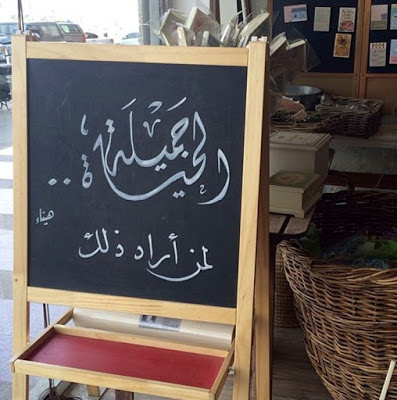 الحياة جَميلة ..
لمن أراد ذلك